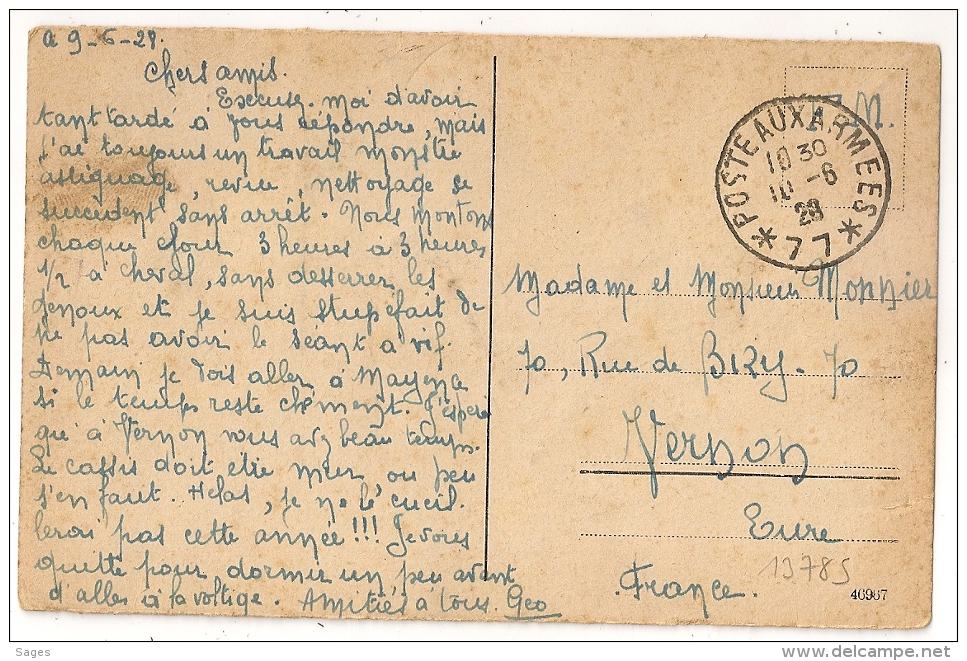 a 9-6-29.
Chers amis.
Excusez-moi d'avoir
tant tardé à vous répondre, mais
j'ai toujours un travail monstre
astiquage, revue, nettoyage se
succèdent sans arrêt. Nous montons
chaque jour 3 heures à 3 heures
1/2 à cheval, sans desserrer les
genoux et je suis stupéfait de
ne pas avoir le séant à vif.
Demain je dois aller à Mayence
si le temps reste clément. J'espère
qu'à Vernon vous avez beau temps.
Le cassis doit être mûr, ou peu
s'en faut. Hélas, je ne le cueil-
lerai pas cette année!!! Je vous
quitte pour dormir un peu avant
d'aller à la voltige. Amitiés à tous. Geo
F.M.
POSTE AUX ARMEES
10 30
10 -6
29
* 77 *
Madame et Monsieur Monnier
70, Rue de BIZY. 70
Vernon
Eure
France.
13785
46967
Sages
delcampe.net